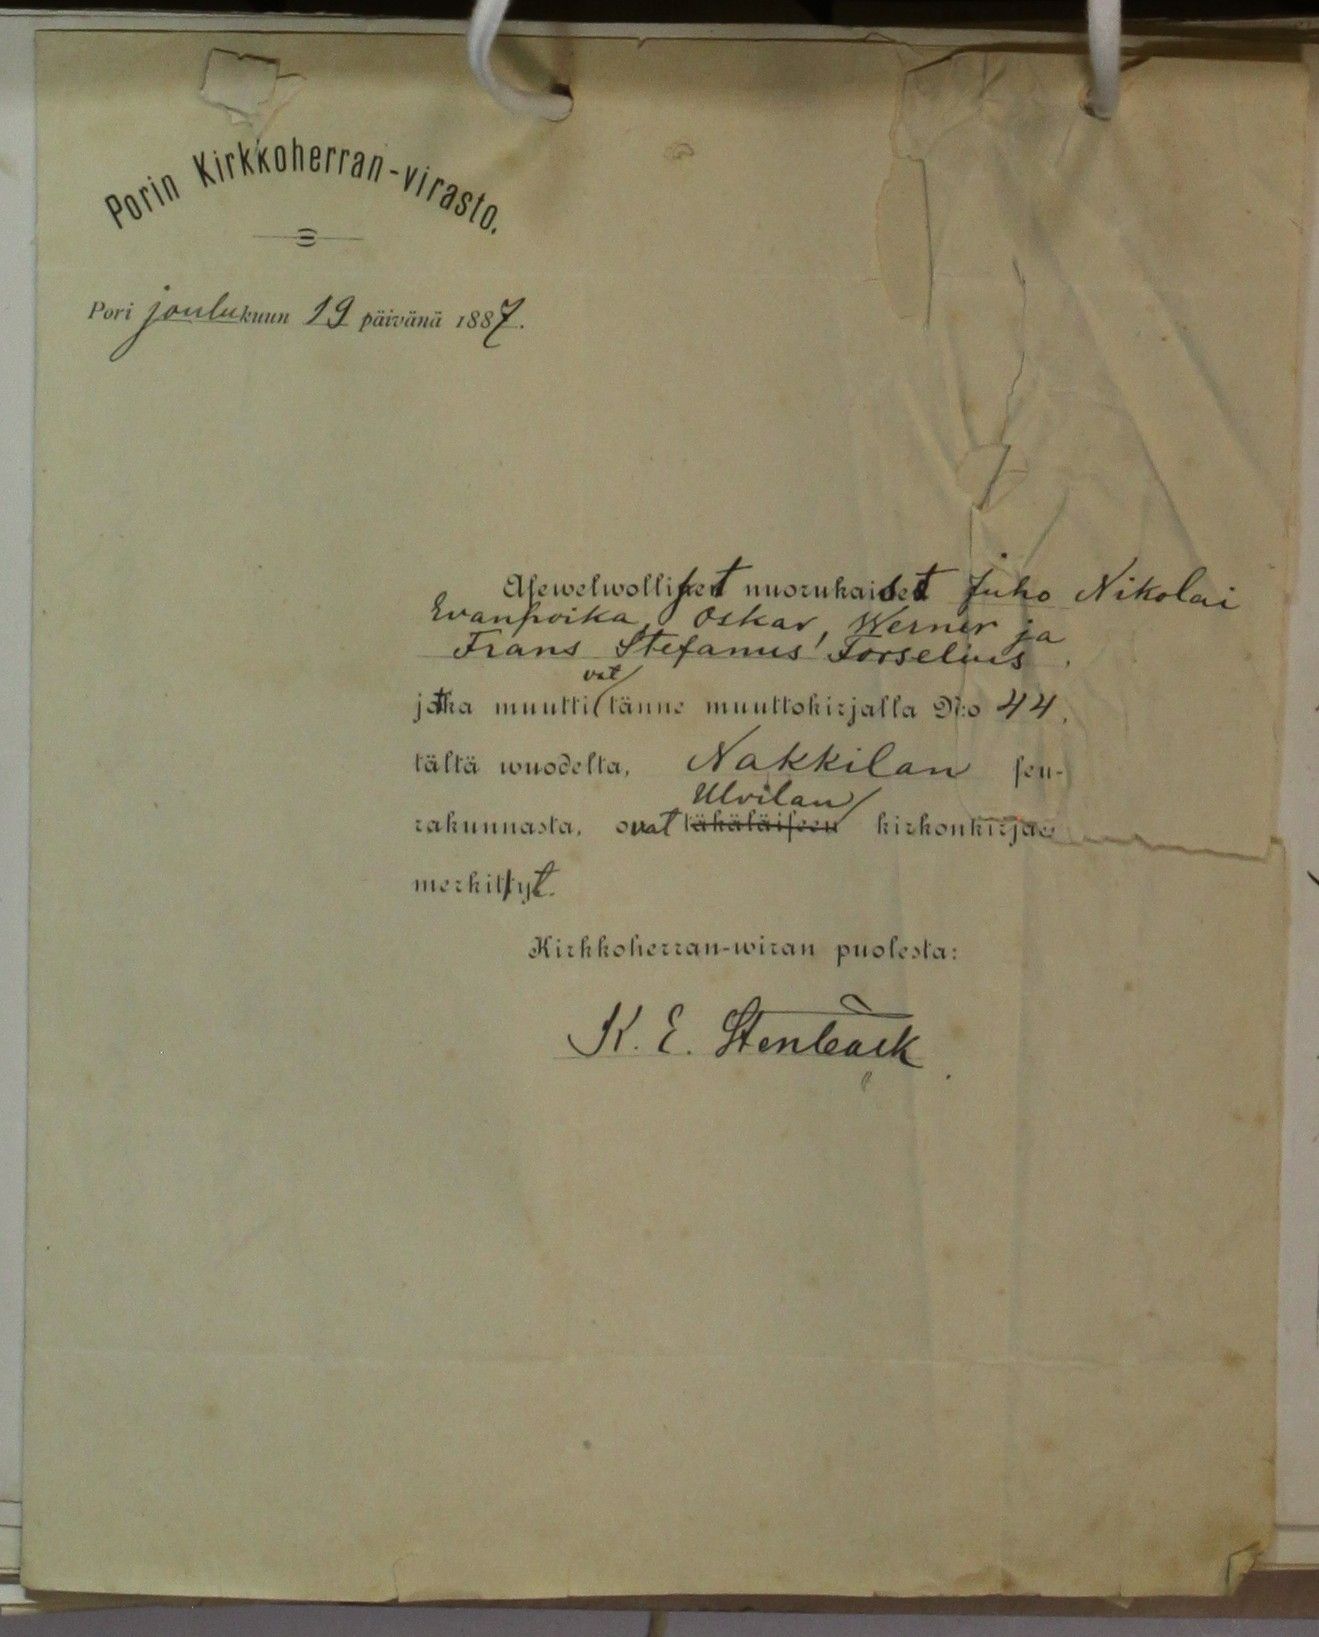 Porin Kirkkoherran-virasto.
Pori joulukuun 19 päivänä 1887.
Asewelwolliset nuorukaiset Juho Nikolai
Evanpoika, Oskar, Werner ja
Frans Stefanus Forselius
vat
jotka muutti tänne muuttokirjalla N:o 44.
tältä wuodelta, Nakkilan seu-
Ulvilan
rakunnasta, ovat täkäläiseen kirkonkirjaan
merkityt.
Kirkkoherran-wiran puolesta:
K. E. Stenbäck